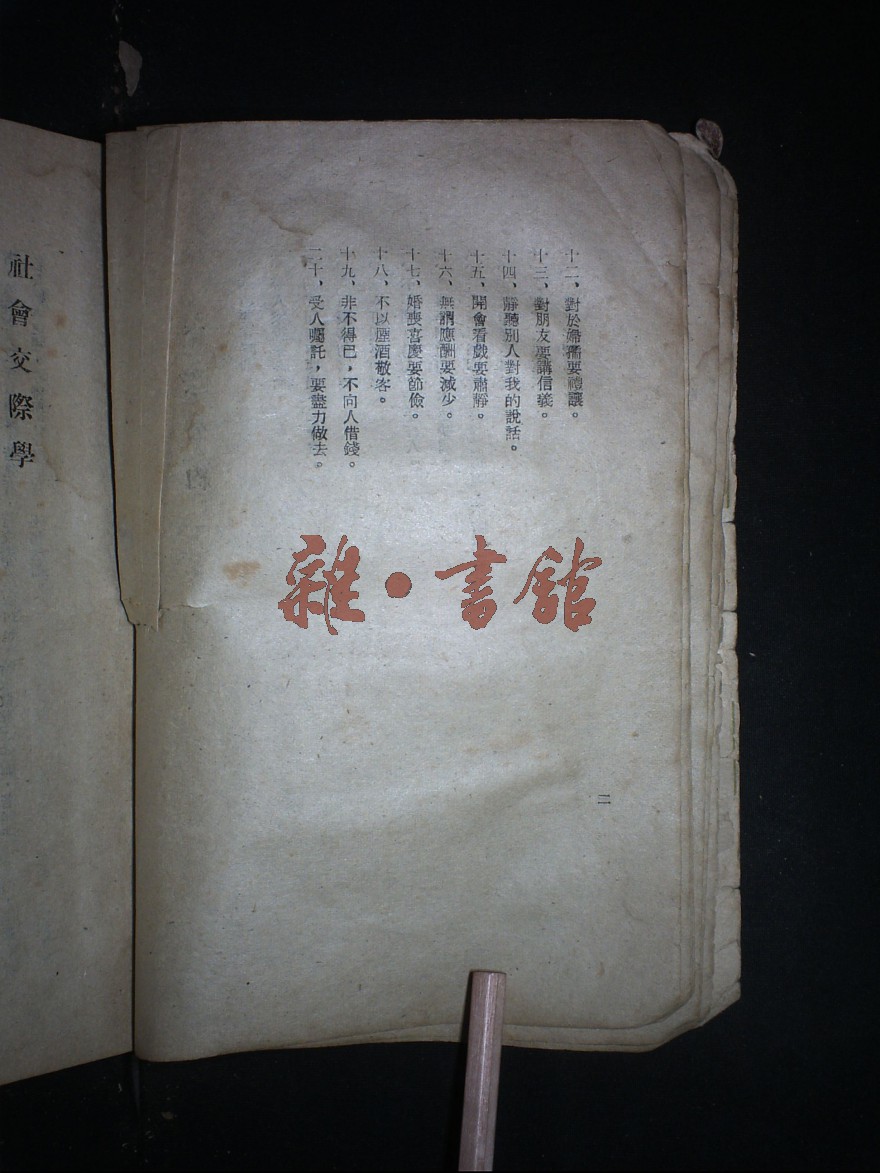 十二、對於婦孺要禮讓。
十三、對朋友要講信義。
十四、靜聽別人對我的說話。
十五、開會看戲要肅靜。
十六、無謂應酬要減少。
十七、婚喪喜慶要節儉。
十八、不以煙酒敬客。
十九、非不得已，不向人借錢。
二十、受人囑託，要盡力做去。
二
社會交際學
雜·書館